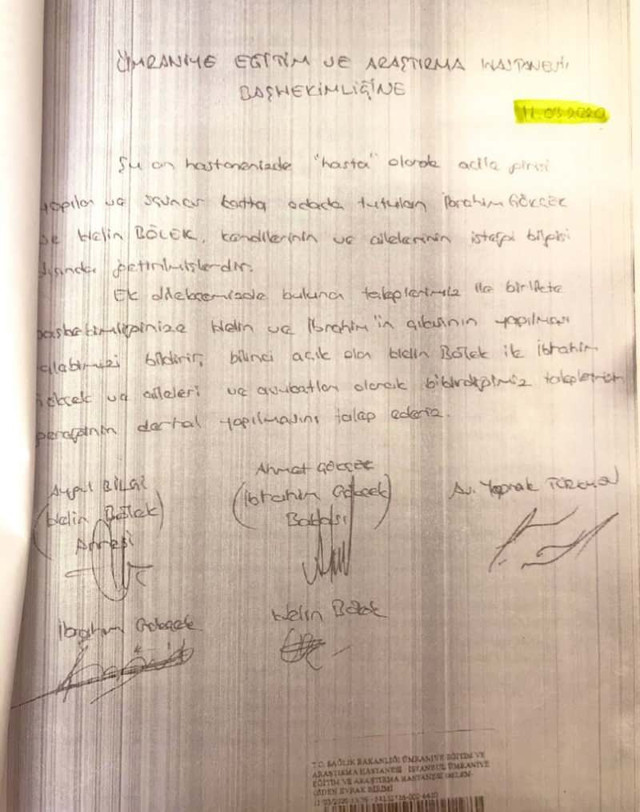 ÜMRANİYE EĞİTİM VE ARAŞTIRMA HASTANESİ
BAŞHEKİMLİĞİNE
11.03.2020
Şu an hastanenizde "hasta" olarak acile girişi
yapılan ve üçüncü katta odada tutulan İbrahim GÖKÇEK
ve Helin BÖLEK, kendilerinin ve ailelerinin isteği bilgisi
dışında getirilmişlerdir.
Ek dilekçemizde bulunan taleplerimiz ile birlikte
başhekimliğinize Helin ve İbrahim'in çıkışının yapılması
talebimizi bildirir, bilinci açık olan Helin Bölek ile İbrahim
Gökçek ve aileleri ve avukatları olarak bildirdiğimiz taleplerimizin
gereğinin derhal yapılmasını talep ederiz.
Aygül BİLGİ
(Helin Bölek)
Annesi
Ahmet GÖKÇEK
(İbrahim Gökçek)
Babası
Av. Yaprak TÜRKMEN
İbrahim Gökçek
Helin Bölek
T.C. SAĞLIK BAKANLIĞI ÜMRANİYE EĞİTİM VE
ARAŞTIRMA HASTANESİ - İSTANBUL ÜMRANİYE
EĞİTİM VE ARAŞTIRMA HASTANESİ
EVRAK BİRİMİ